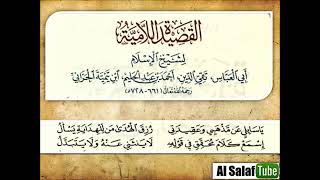 القصيدة اللامية
لشيخ الإسلام
أبي العباس، تقي الدين، أحمد بن عبد الحليم، ابن تيمية الحراني
رحمه الله تعالى (٦٦١-٧٢٨هـ)
يا سائلي عن مذهبي وعقيدتي رزق الهدى من للهداية يسأل
إسمع كلام محقق في قوله لا ينثني عنه ولا يتبدل
Al Salaf Tube